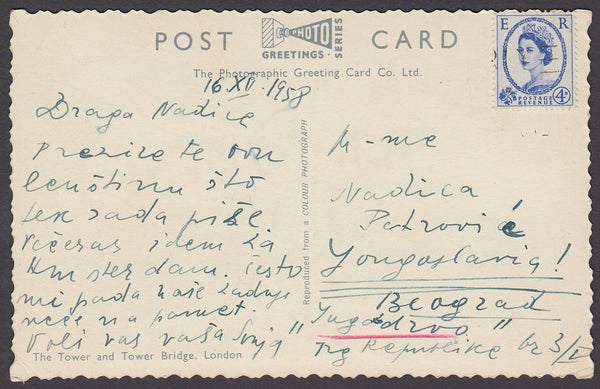 POST CARD
PHOTO
GREETINGS
SERIES
The Photographic Greeting Card Co. Ltd.
E R
POSTAGE REVENUE
4D
16 XII 1958
Draga Nadice
ovu
lenštinu što
tek sada piše
Večeras idem za
Amsterdam. često
mi pada naše zadnje
veče na pamet.
Voli vas vaša
Reproduced from a COLOUR PHOTOGRAPH
M-me
Nadica
Petrović
Yougoslavia!
Beograd
"Jugodrvo"
Trg Republike br 3/I
The Tower and Tower Bridge, London